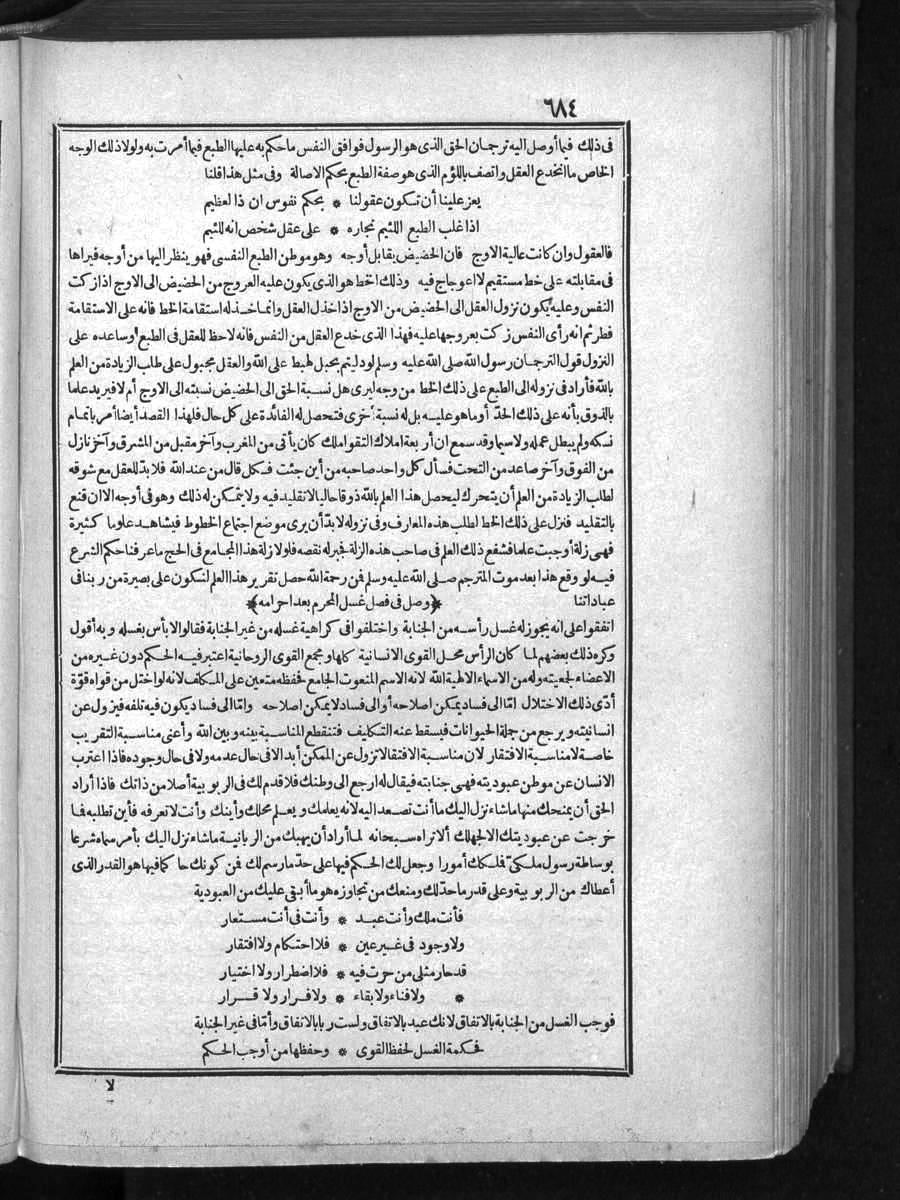 ٦٨٤
فى ذلك فيما أوصل اليه ترجمان الحق الذى هو الرسول فوافق النفس ما حكم به عليها الطبع فيما أمرت به ولولا ذلك الوجه
الخاص ما انخدع العقل واتصف باللؤم الذى هو صفة الطبع بحكم الاصالة وفى مثل هذا قلنا
يعز علينا أن تكون عقولنا * بحكم نفوس ان ذا لعظيم
اذا غلب الطبع اللئيم نجاره * على عقل شخص انه للئيم
فالعقول وان كانت عالية الاوج فان الحضيض يقابل أوجه وهو موطن الطبع النفسى فهو ينظر اليها من أوجه فيراها
فى مقابلته على خط مستقيم لا اعوجاج فيه وذلك الخط هو الذى يكون عليه العروج من الحضيض الى الاوج اذا زكت
النفس وعليه يكون نزول العقل الى الحضيض من الاوج اذا خذل العقل وانما خذله استقامة الخط فانه على الاستقامة
فطر ثم انه رأى النفس زكت بعروجها عليه فهذا الذى خدع العقل من النفس فانه لاحظ للعقل فى الطبع وساعده على
النزول قول الترجمان رسول الله صلى الله عليه وسلم لو دليتم بحبل لهبط على الله والعقل مجبول على طلب الزيادة من العلم
بالله فأراد فى نزوله الى الطبع على ذلك الخط من وجه ليرى هل نسبة الحق الى الحضيض نسبته الى الاوج أم لا فيريد علما
بالذوق بأنه على ذلك الحدّ أو ما هو عليه بل له نسبة أخرى فتحصل له الفائدة على كل حال فلهذا القصد أيضا أمر باتمام
نسكه ولم يبطل عمله ولا سيما وقد سمع ان أربعة املاك التقوا ملك كان يأتى من المغرب وآخر مقبل من المشرق وآخر نازل
من الفوق وآخر صاعد من التحت فسأل كل واحد صاحبه من أين جئت فكل قال من عند الله فلا بدّ للعقل مع شوقه
لطلب الزيادة من العلم أن يتحرك ليحصل هذا العلم بالله ذوقا حاليا لا تقليد فيه ولا يتمكن له ذلك وهو فى أوجه الا ان قنع
بالتقليد فنزل على ذلك الخط لطلب هذه المعارف وفى نزوله لا بدّ أن يرى موضع اجتماع الخطوط فيشاهد علوما كثيرة
فهى زلة أوجبت علما فشفع ذلك العلم فى صاحب هذه الزلة فجبر له نقصه فلولا زلة هذا المجامع فى الحج ما عرفنا حكم الشرع
فيه لو وقع هذا بعد موت المترجم صلى الله عليه وسلم فمن رحمة الله حصل تقرير هذا العلم لنكون على بصيرة من ربنا فى
عباداتنا ﴿وصل فى فصل غسل المحرم بعد احرامه﴾
اتفقوا على انه يجوز له غسل رأسه من الجنابة واختلفوا فى كراهية غسله من غير الجنابة فقالوا لا بأس بغسله وبه أقول
وكره ذلك بعضهم لما كان الرأس محل القوى الانسانية كلها ومجمع القوى الروحانية اعتبر فيه الحكم دون غيره من
الاعضاء لجمعيته وله من الاسماء الالهية الله لانه الاسم المنعوت الجامع فحفظه متعين على المكلف لانه لو اختل من قواه قوّة
أدّى ذلك الاختلال امّا الى فساد يمكن اصلاحه أو الى فساد لا يمكن اصلاحه وامّا الى فساد يكون فيه تلفه فيزول عن
انسانيته ويرجع من جملة الحيوانات فيسقط عنه التكليف فتنقطع المناسبة بينه وبين الله وأعنى مناسبة التقريب
خاصة لا مناسبة الافتقار لان مناسبة الافتقار لا تزول عن الممكن أبدا لا فى حال عدمه ولا فى حال وجوده فاذا اغترب
الانسان عن موطن عبوديته فهى جنابته فيقال له ارجع الى وطنك فلا قدم لك فى الربوبية أصلا من ذاتك فاذا أراد
الحق أن يمنحك منها ما شاء نزل اليك ما أنت تصعد اليه لانه يعلمك ويعلم محلك وأينك وأنت لا تعرفه فأين تطلبه فما
خرجت عن عبوديتك الا لجهلك ألا تراه سبحانه لما أراد أن يهبك من الربانية ما شاء نزل اليك بأمر سماه شرعا
بوساطة رسول ملكىّ فملكك أمورا وجعل لك الحكم فيها على حدّ ما رسم لك فمن كونك حاكما فيها هو القدر الذى
أعطاك من الربوبية وعلى قدر ما حدّ لك ومنعك من تجاوزه هو ما أبقى عليك من العبودية
فأنت ملك وأنت عبد * وأنت فى أنت مستعار
ولا وجود فى غير عين * فلا احتكام ولا افتقار
قد حار مثلى من حرت فيه * فلا اضطرار ولا اختيار
* ولا فناء ولا بقاء * ولا فرار ولا قرار
فوجب الغسل من الجنابة بالاتفاق لانك عبد بالاتفاق ولست ربا بالاتفاق وأمّا فى غير الجنابة
فحكمة الغسل لحفظ القوى * وحفظها من أوجب الحكم
لا